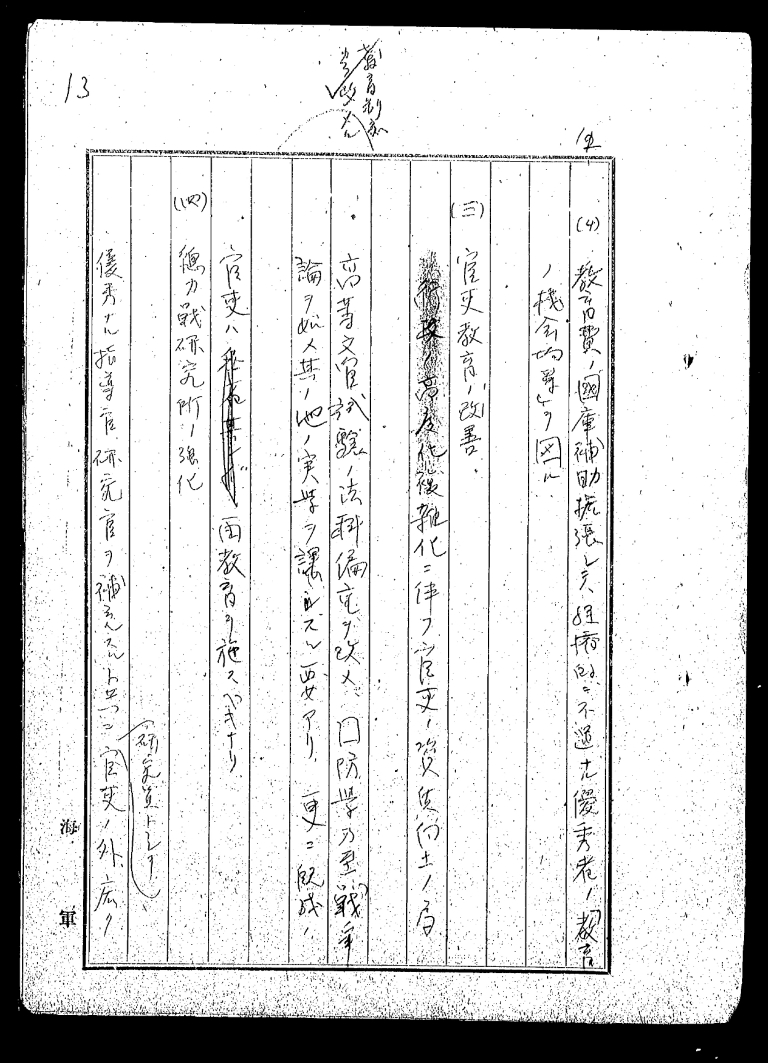 13
(4) 教育費ノ國庫補助拡張シテ経済的ニ不遇ナル優秀者ノ教育
ノ機会均等ヲ図ル
(三) 官吏教育ノ改善
行政ノ高度化複雑化ニ伴フ官吏ノ資質向上ノ為
高等文官試験ノ法科偏重ヲ改メ 国防学乃至戦争
論ヲ始メ其ノ他ノ実学ヲ課スル要アリ 更ニ既成ノ
官吏ハ 再教育ヲ施スベキナリ
(四) 總力戰研究所ノ強化
(研究生トシテ)
優秀ナル指導官研究官ヲ補充スルト共ニ官吏ノ外広ク
海軍